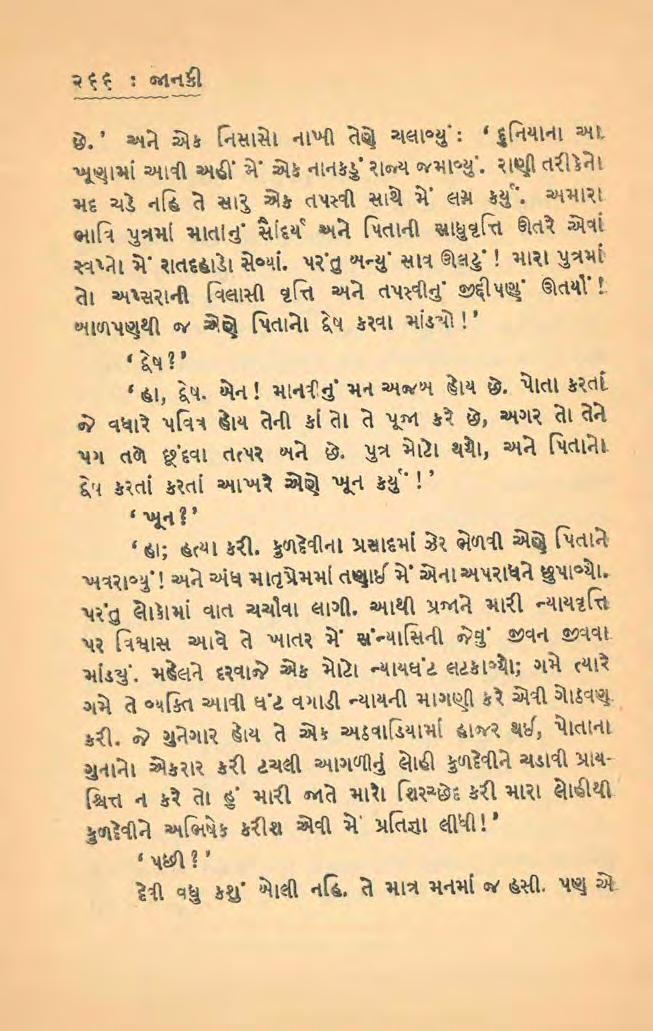 ૨૬૬ : જાનકી
છે.' અને એક નિસાસો નાખી તેણે ચલાવ્યું: ‘ દુનિયાના આ
ખૂણામાં આવી અહીં મેં એક નાનકડું રાજ્ય જમાવ્યું. રાણી તરીકેનો
મદ ચડે નહિ તે સારુ એક તપસ્વી સાથે મેં લગ્ન કર્યું. અમારા
ભાવિ પુત્રમાં માતાનું સૌંદર્ય અને પિતાની સાધુવૃત્તિ ઊતરે એવાં
સ્વપ્નો મેં રાતદહાડો સેવ્યાં. પરંતુ બન્યું સાવ ઊલટું ! મારા પુત્રમાં
તો અપ્સરાની વિલાસી વૃત્તિ અને તપસ્વીનું જીદ્દીપણું ઊતર્યાં !
બાળપણથી જ એણે પિતાનો દ્વેષ કરવા માંડ્યો !'
‘ દ્વેષ ?'
‘ હા, દ્વેષ. બેન ! માનવીનું મન અજબ હોય છે. પોતા કરતાં
જે વધારે પવિત્ર હોય તેની કાં તો તે પૂજા કરે છે, અગર તો તેને
પગ તળે છૂંદવા તત્પર બને છે. પુત્ર મોટો થયો, અને પિતાનો
દ્વેષ કરતાં કરતાં આખરે એણે ખૂન કર્યું !'
‘ ખૂન ?'
‘ હા; હત્યા કરી. કુળદેવીના પ્રસાદમાં ઝેર ભેળવી એણે પિતાને
ખવરાવ્યું ! અને અંધ માતૃપ્રેમમાં તણાઈ મેં એના અપરાધને છુપાવ્યો.
પરંતુ લોકોમાં વાત ચર્ચાવા લાગી. આથી પ્રજાને મારી ન્યાયવૃત્તિ
પર વિશ્વાસ આવે તે ખાતર મેં સંન્યાસિની જેવું જીવન જીવવા
માંડ્યું. મહેલને દરવાજે એક મોટો ન્યાયઘંટ લટકાવ્યો; ગમે ત્યારે
ગમે તે વ્યક્તિ આવી ઘંટ વગાડી ન્યાયની માગણી કરે એવી ગોઠવણ
કરી. જે ગુનેગાર હોય તે એક અઠવાડિયામાં હાજર થઈ, પોતાના
ગુનાનો એકરાર કરી ટચલી આગળીનું લોહી કુળદેવીને ચડાવી પ્રાય-
શ્ચિત્ત ન કરે તો હું મારી જાતે મારો શિરચ્છેદ કરી મારા લોહીથી
કુળદેવીને અભિષેક કરીશ એવી મેં પ્રતિજ્ઞા લીધી !'
‘ પછી ?'
દેવી વધુ કશું બોલી નહિ. તે માત્ર મનમાં જ હસી. પણ એ